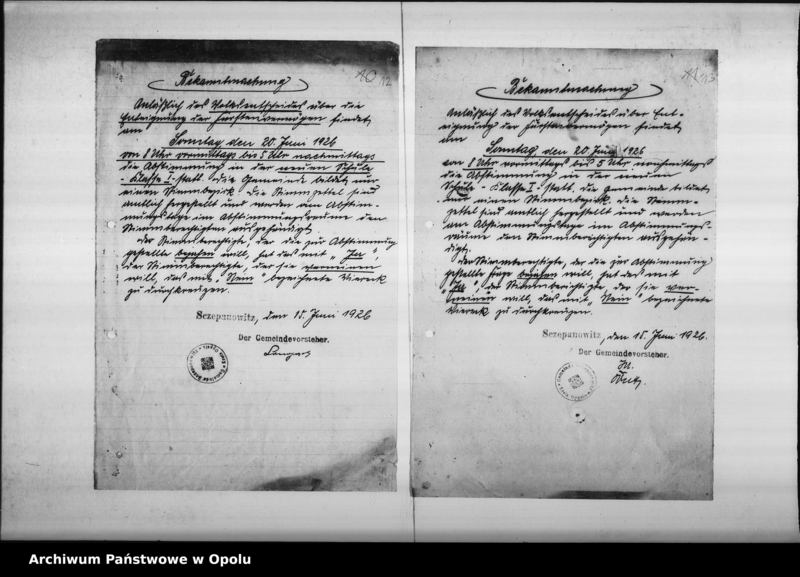 10 12
Bekanntmachung
Anläßlich des Volksentscheides über die
Enteignung der Fürstenvermögen findet
am
Sonntag den 20. Juni 1926
von 8 Uhr vormittags bis 5 Uhr nachmittags
die Abstimmung in der neuen Schule
- Klasse I - statt. Die Gemeinde bildet nur
einen Stimmbezirk. Die Stimmzettel sind
amtlich hergestellt und werden am Abstim-
mungstage im Abstimmungsraum den
Stimmberechtigten ausgehändigt.
Der Stimmberechtigte, der die zur Abstimmung
gestellte bejahen will, hat das mit "Ja",
der Stimmberechtigte, der sie verneinen
will, das mit "Nein" bezeichnete Viereck
zu durchkreuzen.
Sczepanowitz, den 15. Juni 1926
Der Gemeindevorsteher.
11 13
Bekanntmachung
Anläßlich des Volksentscheides über Ent-
eignung der Fürstenvermögen findet
am
Sonntag den 20. Juni 1926
von 8 Uhr vormittags bis 5 Uhr nachmittags
die Abstimmung in der neuen
Schule - Klasse I - statt. Die Gemeinde bildet
nur einen Stimmbezirk. Die Stimm-
zettel sind amtlich hergestellt und werden
am Abstimmungstage im Abstimmungs-
raum den Stimmberechtigten ausgehän-
digt.
Der Stimmberechtigte, der die zur Abstimmung
gestellte Frage bejahen will, hat das mit
"Ja", der Stimmberechtigte, der sie ver-
neinen will, das mit "Nein" bezeichnete
Viereck zu durchkreuzen.
Sczepanowitz, den 15. Juni 1926.
Der Gemeindevorsteher.
Archiwum Państwowe w Opolu